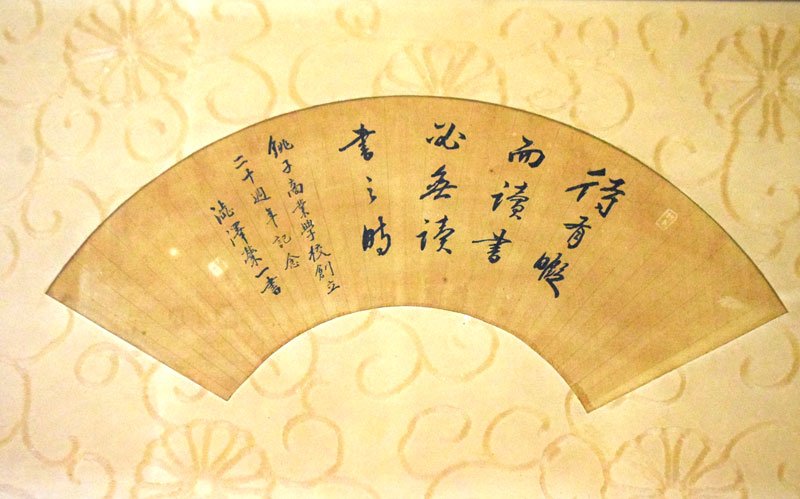 待有暇
而讀書
必無讀
書之時
銚子商業學校創立
二十週年記念
澁澤榮一書